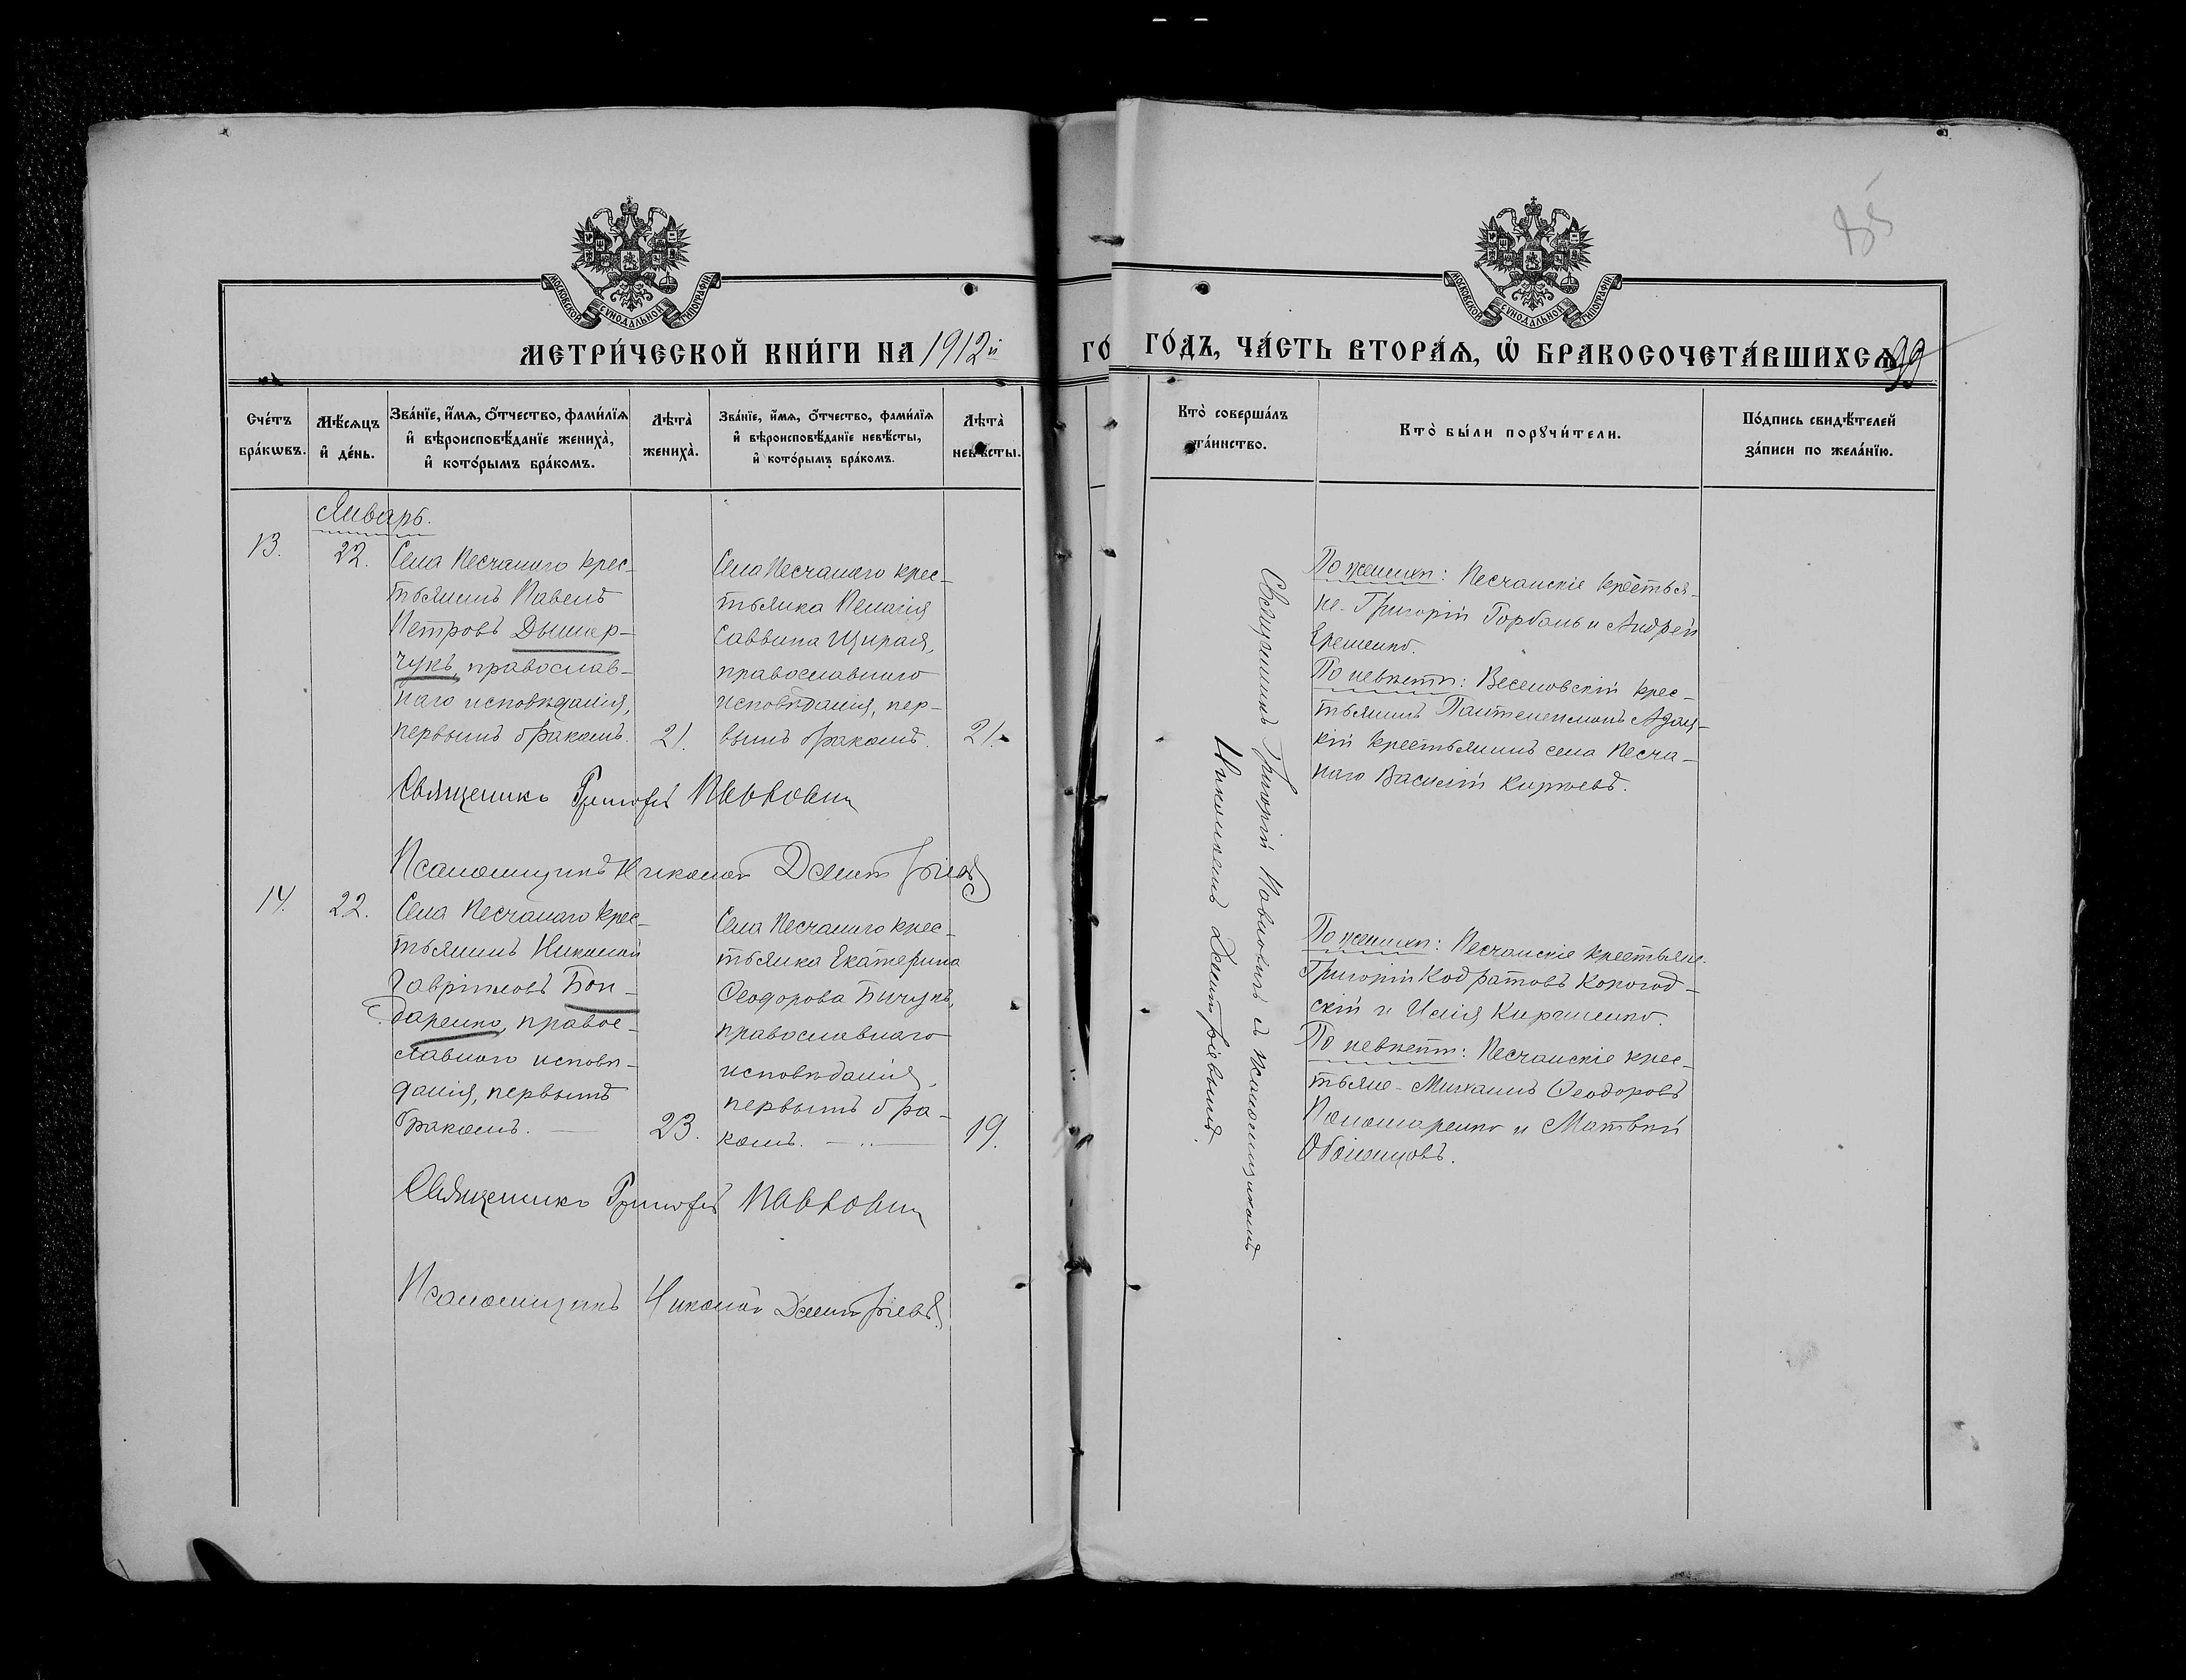 85
МОСКОВСКОЙ СѴНОДАЛЬНОЙ ТИПОГРАФІИ.
МОСКОВСКОЙ СѴНОДАЛЬНОЙ ТИПОГРАФІИ.
МЕТРИ́ЧЕСКОЙ КНИ́ГИ НА 1912й
ГО
ГО́ДЪ, ЧА́СТЬ ВТОРА́Ѧ, Ѡ҆ БРАКОСОЧЕТА́ВШИХСѦ. 99
Сче́тъ
бра́кѡвъ.
Мѣ́сяцъ
и҆ де́нь.
Зва́нїе, и҆́мя, о҆́тчество, фами́лїя
и҆ вѣроисповѣ́данїе жениха̀,
и҆ кото́рымъ бра́комъ.
Лѣта̀
жениха̀.
Зва́нїе, и҆́мя, о҆́тчество, фами́лїя
и҆ вѣроисповѣ́данїе невѣ́сты,
и҆ кото́рымъ бра́комъ.
Лѣта̀
невѣ́сты.
Кто̀ соверша́лъ
та́инство.
Кто̀ бы́ли порꙋчи́тели.
По́дпись свидѣ́телей
за́писи по жела́нїю.
Январь.
13.
22.
Села Песчанаго крес-
тьянинъ Павелъ
Петровъ Дымар-
чукъ, православ-
наго исповѣданія,
первымъ бракомъ.
21.
Села Песчанаго крес-
тьянка Пелагія
Саввина Щирая,
православнаго
исповѣданія, пер-
вымъ бракомъ.
21.
Священникъ Григорій Павловичъ съ псаломщикомъ
Николаемъ Димитріевымъ.
По женихѣ: Песчанскіе крестья-
не - Григорій Горбань и Андрей
Ерешенко.
По невѣстѣ: Веселовскій крес-
тьянинъ Пантелеимонъ
крестьянинъ села Песча-
наго Василій Киріевъ.
Священникъ Григорій Павловичъ
Псаломщикъ Николай Димитріевъ
14.
22.
Села Песчанаго крес-
тьянинъ Николай
Гавріиловъ Бон-
даренко, правос-
лавнаго исповѣ-
данія, первымъ
бракомъ.
23.
Села Песчанаго крес-
тьянка Екатерина
Ѳеодорова Бичукъ,
православнаго
исповѣданія,
первымъ бра-
комъ.
19.
По женихѣ: Песчанскіе крестьяне-
Григорій Кодратовъ Кологод-
скій и Илія Кириленко.
По невѣстѣ: Песчанскіе крес-
тьяне - Михаилъ Ѳеодоровъ
Пономаренко и Матвѣй
Священникъ Григорій Павловичъ
Псаломщикъ Николай Димитріевъ